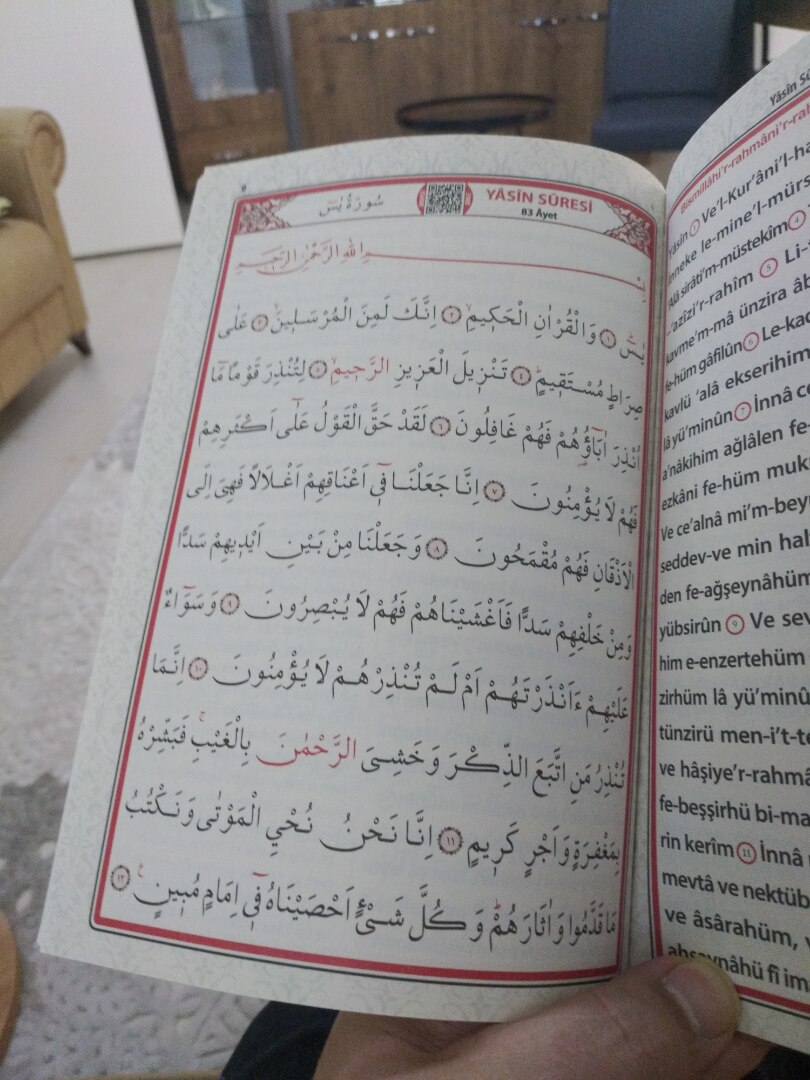 ٥
سُورَةُ يٰسٓ
YÂSÎN SÛRESİ
83 Âyet
بِسْمِ اللّٰهِ الرَّحْمٰنِ الرَّحِيمِ
يٰسٓ ﴿١﴾ وَالْقُرْاٰنِ الْحَكِيمِ ﴿٢﴾ اِنَّكَ لَمِنَ الْمُرْسَلِينَ ﴿٣﴾ عَلٰى
صِرَاطٍ مُسْتَقِيمٍ ﴿٤﴾ تَنْزِيلَ الْعَزِيزِ الرَّحِيمِ ﴿٥﴾ لِتُنْذِرَ قَوْمًا مَٓا
اُنْذِرَ اٰبَٓاؤُ۬هُمْ فَهُمْ غَافِلُونَ ﴿٦﴾ لَقَدْ حَقَّ الْقَوْلُ عَلٰٓى اَكْثَرِهِمْ
فَهُمْ لَا يُؤْمِنُونَ ﴿٧﴾ اِنَّا جَعَلْنَا فِٓي اَعْنَاقِهِمْ اَغْلَالًا فَهِيَ اِلَى
الْاَذْقَانِ فَهُمْ مُقْمَحُونَ ﴿٨﴾ وَجَعَلْنَا مِنْ بَيْنِ اَيْدِيهِمْ سَدًّا
وَمِنْ خَلْفِهِمْ سَدًّا فَاَغْشَيْنَاهُمْ فَهُمْ لَا يُبْصِرُونَ ﴿٩﴾ وَسَوَٓاءٌ
عَلَيْهِمْ ءَاَنْذَرْتَهُمْ اَمْ لَمْ تُنْذِرْهُمْ لَا يُؤْمِنُونَ ﴿١٠﴾ اِنَّمَا
تُنْذِرُ مَنِ اتَّبَعَ الذِّكْرَ وَخَشِيَ الرَّحْمٰنَ بِالْغَيْبِۚ فَبَشِّرْهُ
بِمَغْفِرَةٍ وَاَجْرٍ كَرِيمٍ ﴿١١﴾ اِنَّا نَحْنُ نُحْيِ الْمَوْتٰى وَنَكْتُبُ
مَا قَدَّمُوا وَاٰثَارَهُمْۜ وَكُلَّ شَيْءٍ اَحْصَيْنَاهُ فِٓي اِمَامٍ مُبِينٍ۟ ﴿١٢﴾
Yâsîn
Bismillâhi’r-rahmâni’r-ra
Yâsîn 1 Ve’l-Kur’âni’l-ha
inneke le-mine’l-mürs
Alâ sırâti’m-müstekîm 4
-’azîzi’r-rahîm 5 Li-
kavme’m-mâ ünzira âb
fe-hüm gâfilûn 6 Le-kad
kavlü ’alâ ekserihim
lâ yü’minûn 7 İnnâ ce
a’nâkihim ağlâlen fe-
ezkâni fe-hüm muk
Ve ce’alnâ mi’m-bey
seddev-ve min hal
den fe-ağşeynâhüm
yübsirûn 9 Ve sev
him e-enzertehüm
zirhüm lâ yü’minû
tünzirü men-i’t-te
ve hâşiye’r-rahmâ
fe-beşşirhü bi-ma
rin kerîm 11 İnnâ
mevtâ ve nektüb
ve âsârahüm,
ahsaynâhü fî im